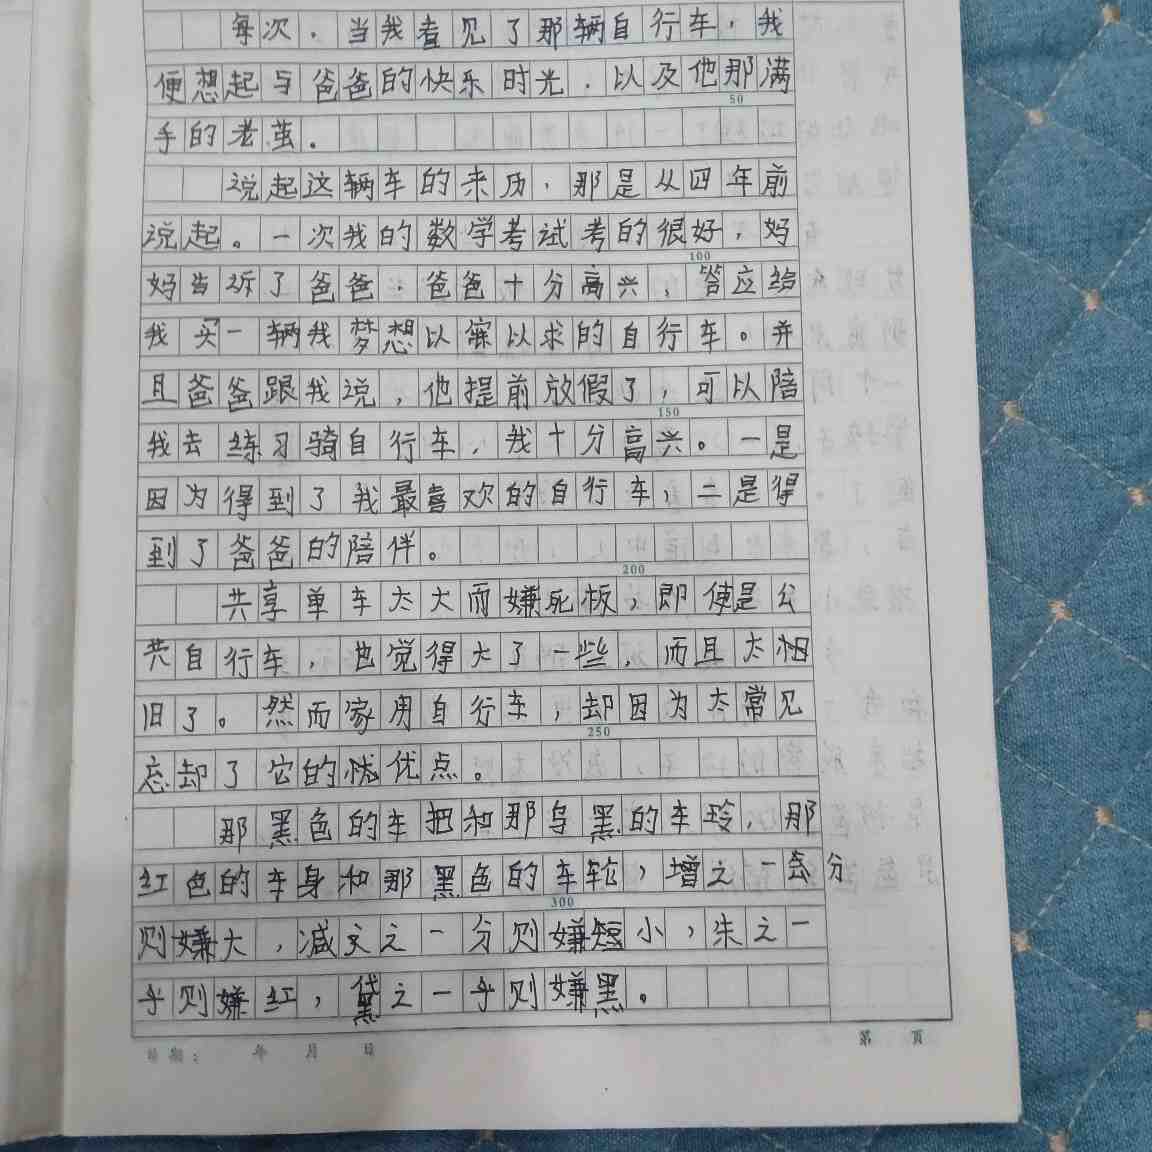 每次，当我看见了那辆自行车，我
便想起与爸爸的快乐时光，以及他那满
50
手的老茧。
说起这辆车的来历，那是从四年前
说起。一次我的数学考试考的很好，妈
100
妈告诉了爸爸，爸爸十分高兴，答应给
我买一辆我梦想以寐以求的自行车。并
且爸爸跟我说，他提前放假了，可以陪
150
我去练习骑自行车，我十分高兴。一是
因为得到了我最喜欢的自行车，二是得
到了爸爸的陪伴。
200
共享单车太大而嫌死板，即使是公
共自行车，也觉得大了一些，而且太
旧了。然而家用自行车，却因为太常见
250
忘却了它的优点。
那黑色的车把和那乌黑的车玲，那
红色的车身和那黑色的车轮，增之一分
300
则嫌大，减之一分则嫌短小，朱之一
乎则嫌红，黛之一乎则嫌黑。
日期： 年 月 日
第 页